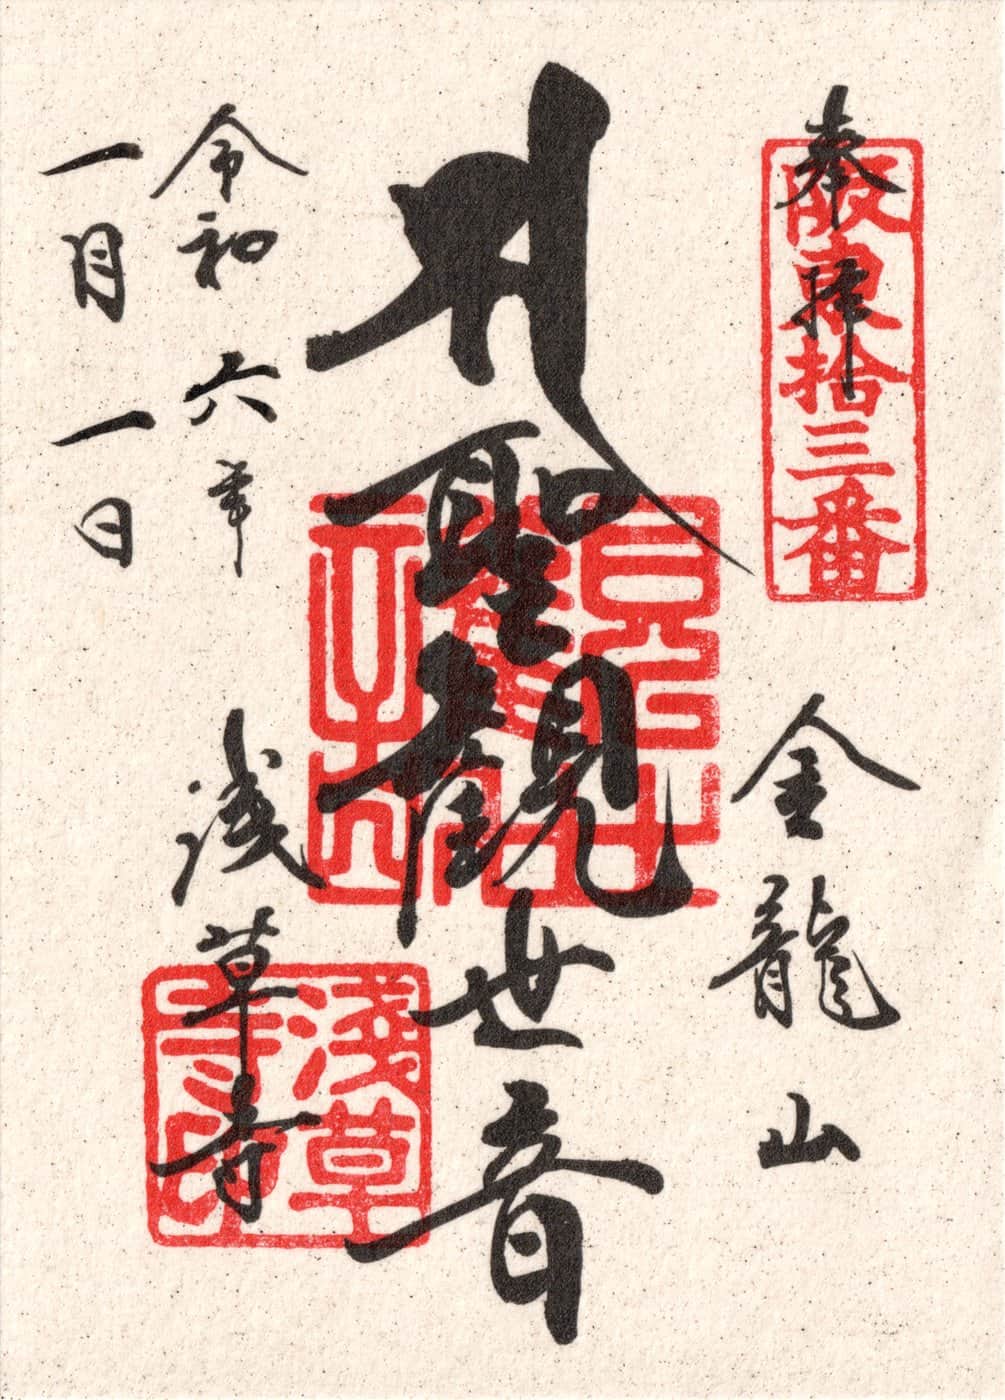 奉拝
阪東拾三番
金龍山
聖観世音
浅草寺
淺草寺印
令和六年
一月一日